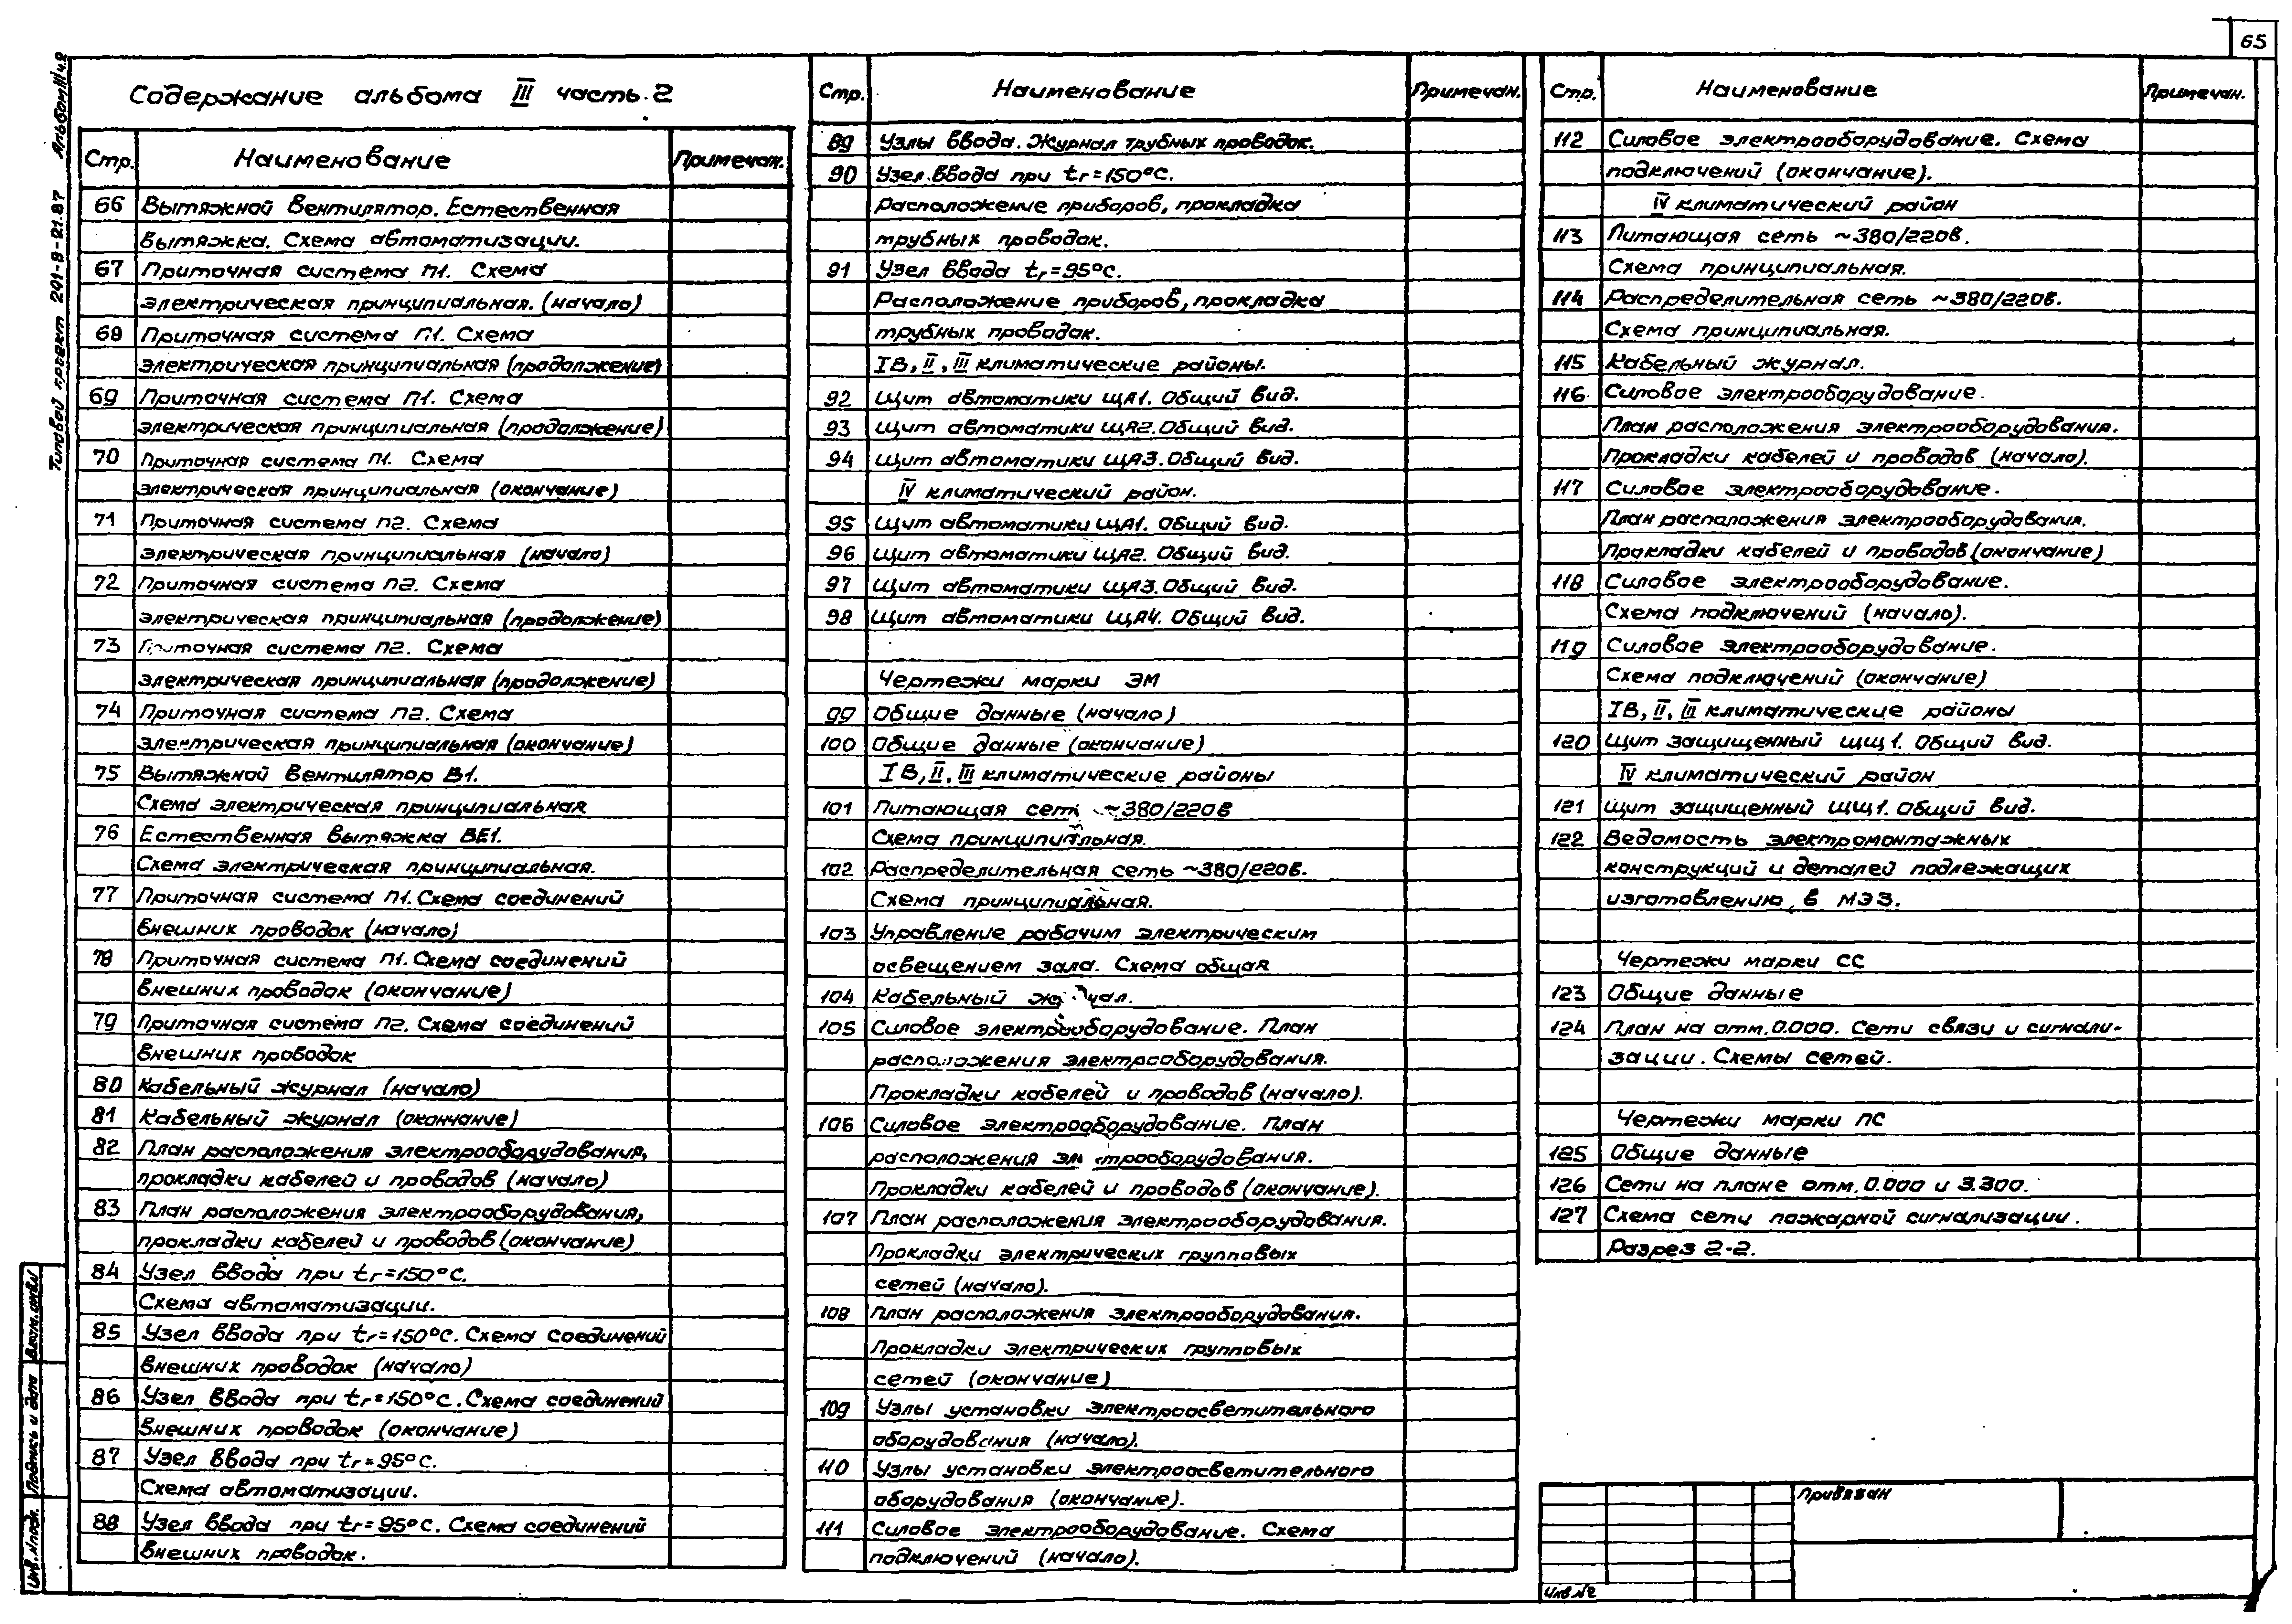 65
Типовой проект 291-8-21.87 Альбом III ч.2
Содержание альбома III часть 2
Стр. Наименование Примечан.
66 Вытяжной вентилятор. Естественная
вытяжка. Схема автоматизации.
67 Приточная система П1. Схема
электрическая принципиальная. (начало)
68 Приточная система П1. Схема
электрическая принципиальная (продолжение)
69 Приточная система П1. Схема
электрическая принципиальная (продолжение)
70 Приточная система П1. Схема
электрическая принципиальная (окончание)
71 Приточная система П2. Схема
электрическая принципиальная (начало)
72 Приточная система П2. Схема
электрическая принципиальная (продолжение)
73 Приточная система П2. Схема
электрическая принципиальная (продолжение)
74 Приточная система П2. Схема
электрическая принципиальная (окончание)
75 Вытяжной вентилятор В1.
Схема электрическая принципиальная
76 Естественная вытяжка ВЕ1.
Схема электрическая принципиальная.
77 Приточная система П1. Схема соединений
внешних проводок (начало)
78 Приточная система П1. Схема соединений
внешних проводок (окончание)
79 Приточная система П2. Схема соединений
внешних проводок
80 Кабельный журнал (начало)
81 Кабельный журнал (окончание)
82 План расположения электрооборудования,
прокладки кабелей и проводов (начало)
83 План расположения электрооборудования,
прокладки кабелей и проводов (окончание)
84 Узел ввода при tг=150°С.
Схема автоматизации.
85 Узел ввода при tг=150°С. Схема соединений
внешних проводок (начало)
86 Узел ввода при tг=150°С. Схема соединений
внешних проводок (окончание)
87 Узел ввода при tг=95°С.
Схема автоматизации.
88 Узел ввода при tг=95°С. Схема соединений
внешних проводок.
Стр. Наименование Примечан.
89 Узлы ввода. Журнал трубных проводок.
90 Узел ввода при tг=150°С.
Расположение приборов, прокладка
трубных проводок.
91 Узел ввода tг=95°С.
Расположение приборов, прокладка
трубных проводок.
IВ, II, III климатические районы.
92 Щит автоматики ЩА1. Общий вид.
93 Щит автоматики ЩА2. Общий вид.
94 Щит автоматики ЩА3. Общий вид.
IV климатический район.
95 Щит автоматики ЩА1. Общий вид.
96 Щит автоматики ЩА2. Общий вид.
97 Щит автоматики ЩА3. Общий вид.
98 Щит автоматики ЩА4. Общий вид.
Чертежи марки ЭМ
99 Общие данные (начало)
100 Общие данные (окончание)
IВ, II, III климатические районы
101 Питающая сеть ~380/220В
Схема принципиальная.
102 Распределительная сеть ~380/220В.
Схема принципиальная.
103 Управление рабочим электрическим
освещением зала. Схема общая
104 Кабельный журнал.
105 Силовое электрооборудование. План
расположения электрооборудования.
Прокладки кабелей и проводов (начало).
106 Силовое электрооборудование. План
расположения электрооборудования.
Прокладки кабелей и проводов (окончание).
107 План расположения электрооборудования.
Прокладки электрических групповых
сетей (начало).
108 План расположения электрооборудования.
Прокладки электрических групповых
сетей (окончание)
109 Узлы установки электроосветительного
оборудования (начало).
110 Узлы установки электроосветительного
оборудования (окончание).
111 Силовое электрооборудование. Схема
подключений (начало).
Стр. Наименование Примечан.
112 Силовое электрооборудование. Схема
подключений (окончание).
IV климатический район
113 Питающая сеть ~380/220В.
Схема принципиальная.
114 Распределительная сеть ~380/220В.
Схема принципиальная.
115 Кабельный журнал.
116 Силовое электрооборудование.
План расположения электрооборудования.
Прокладки кабелей и проводов (начало).
117 Силовое электрооборудование.
План расположения электрооборудования.
Прокладки кабелей и проводов (окончание)
118 Силовое электрооборудование.
Схема подключений (начало).
119 Силовое электрооборудование.
Схема подключений (окончание)
IВ, II, III климатические районы
120 Щит защищенный ЩЩ1. Общий вид.
IV климатический район
121 Щит защищенный ЩЩ1. Общий вид.
122 Ведомость электромонтажных
конструкций и деталей подлежащих
изготовлению в МЭЗ.
Чертежи марки СС
123 Общие данные
124 План на отм. 0.000. Сети связи и сигнали-
зации. Схемы сетей.
Чертежи марки ПС
125 Общие данные
126 Сети на плане отм. 0.000 и 3.300.
127 Схема сети пожарной сигнализации.
Разрез 2-2.
Привязан
Инв. №
Инв. № подл. Подпись и дата Взам. инв. №